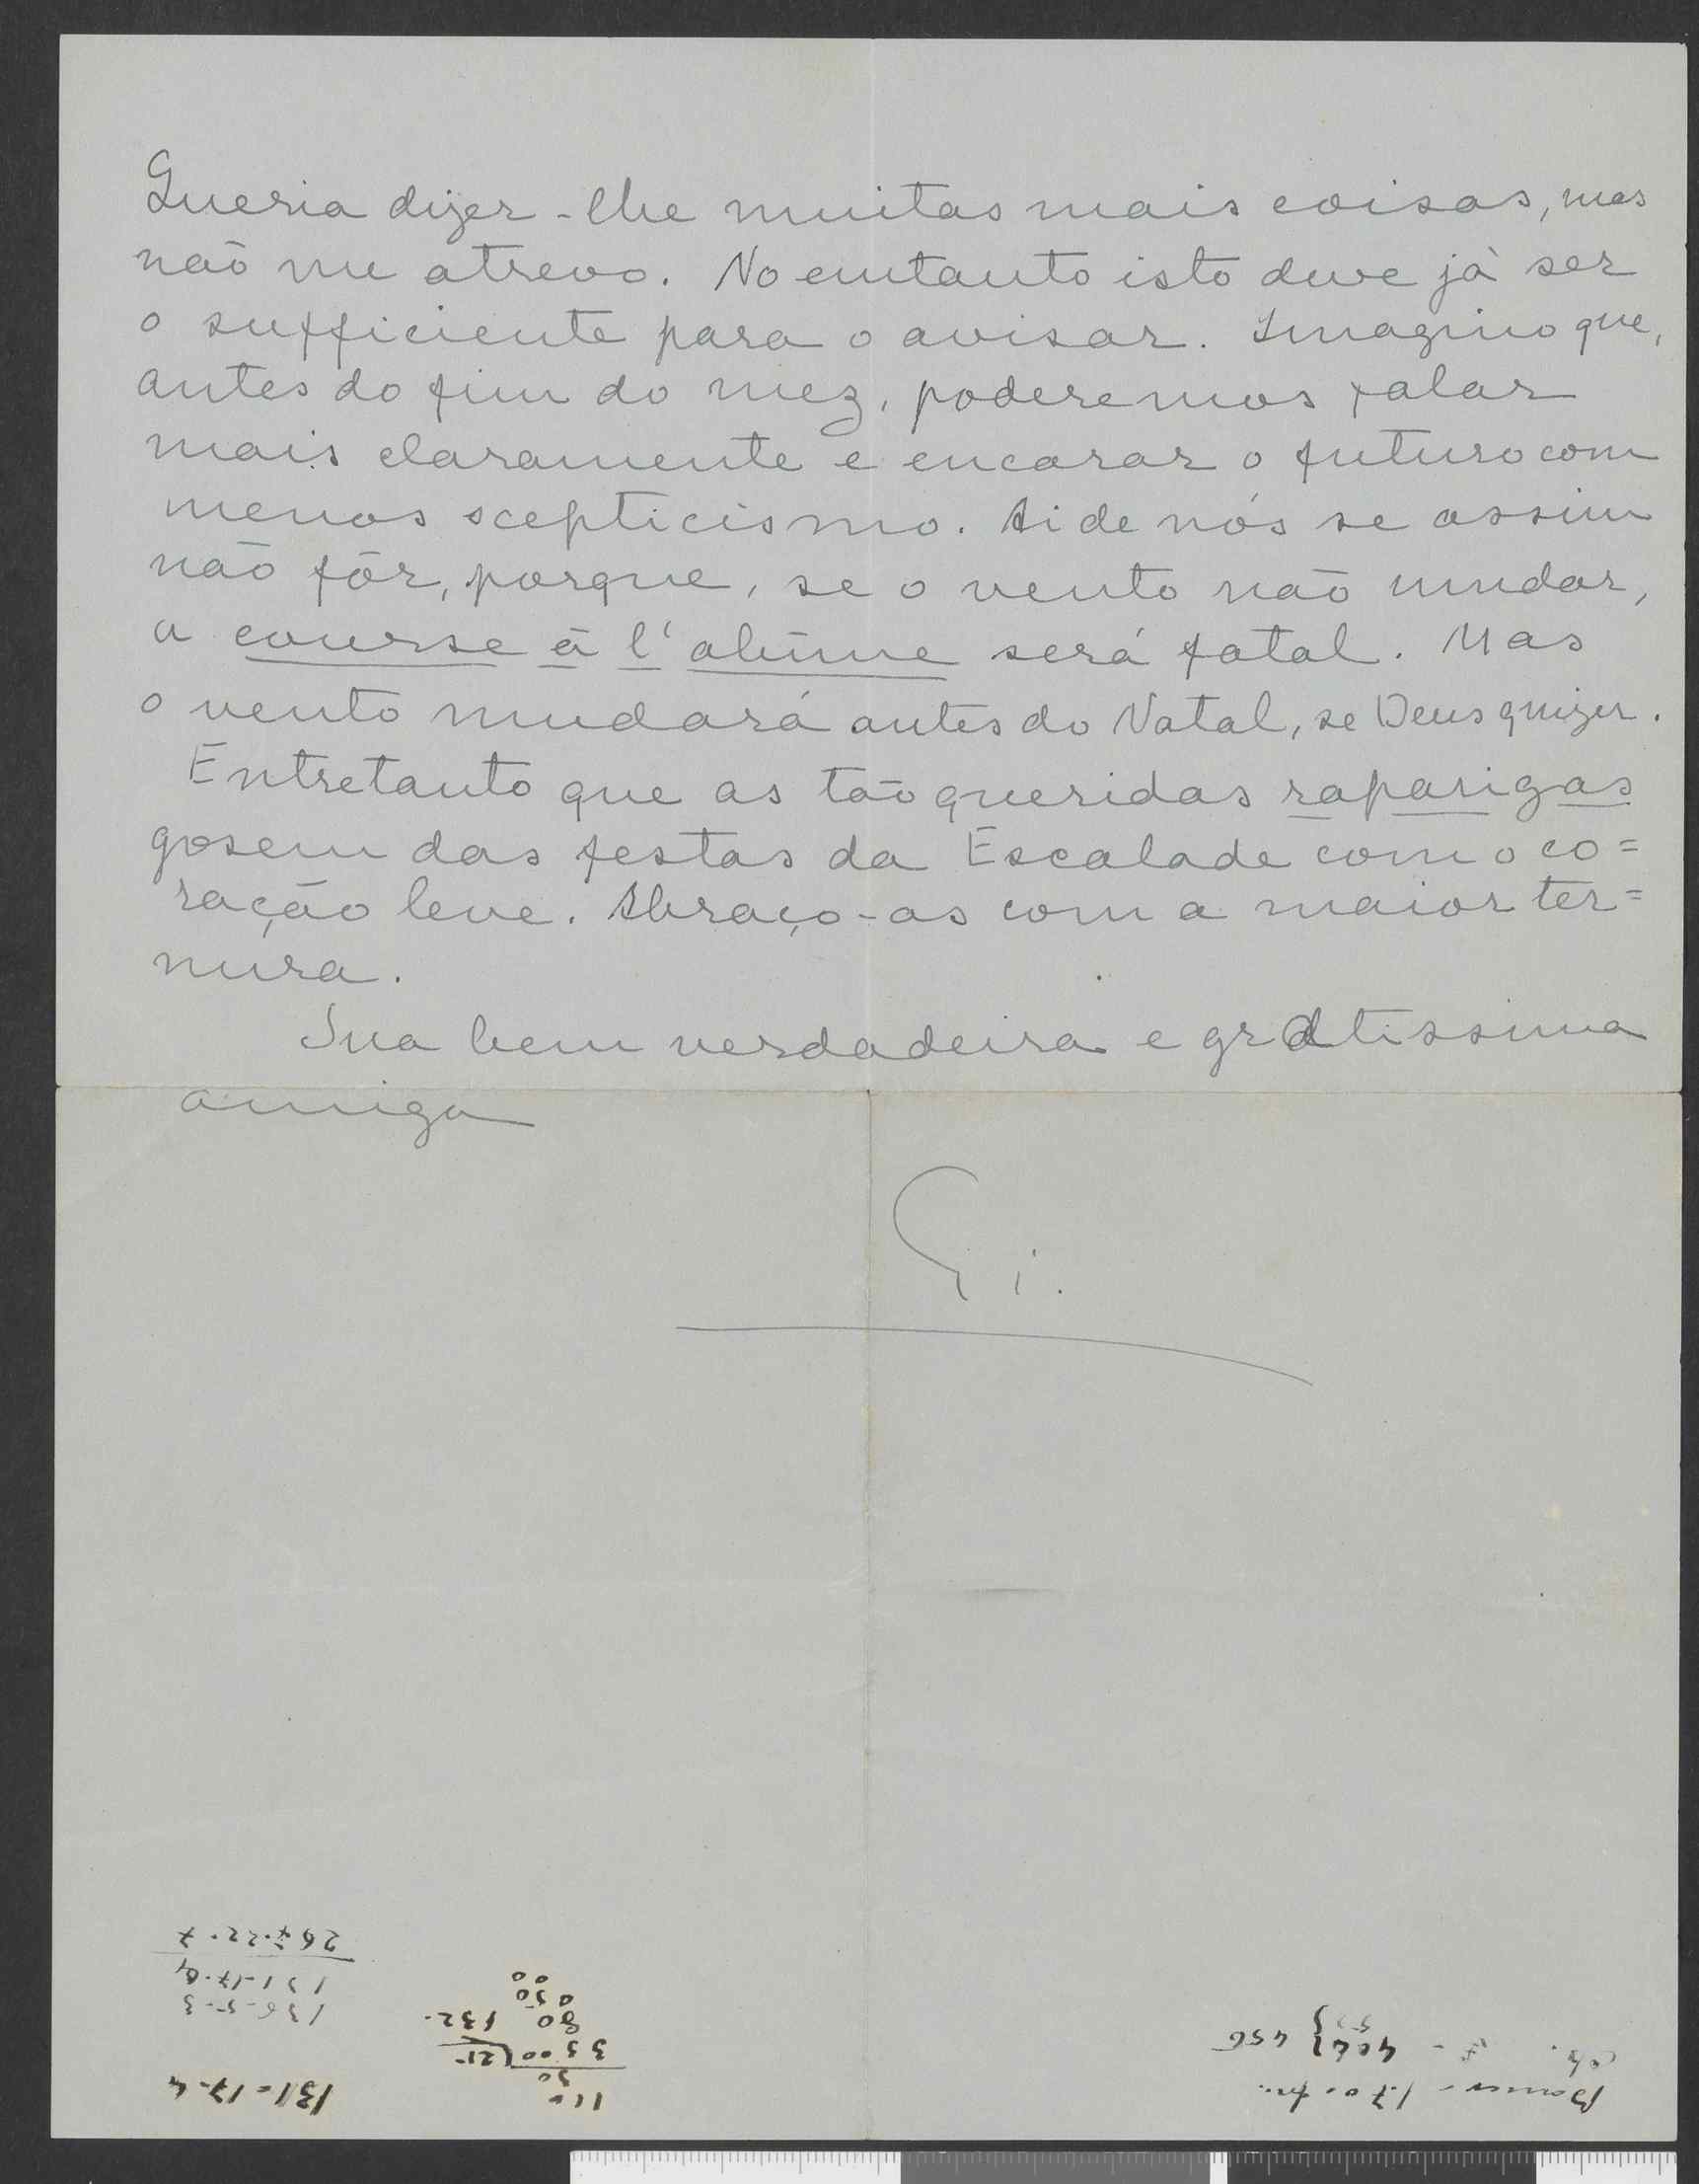 Queria dizer-lhe muitas mais coisas, mas
não me atrevo. No emtanto isto deve já ser
o sufficiente para o avisar. Imagino que,
antes do fim do mez, poderemos falar
mais claramente e encarar o futuro com
menos scepticismo. Ai de nós se assim
não fôr, porque, se o vento não mudar,
a course à l'abîme será fatal. Mas
o vento mudará antes do Natal, se Deus quizer.
Entretanto que as tão queridas raparigas
gosem das festas da Escalade com o co=
ração leve. Abraço-as com a maior ter=
nura.
Sua bem verdadeira e gratissima
amiga
Gi.
131-17-4
136-5-3
131-17-4
267-22-7
3300 25
80 132.
050
00
170
404} 456